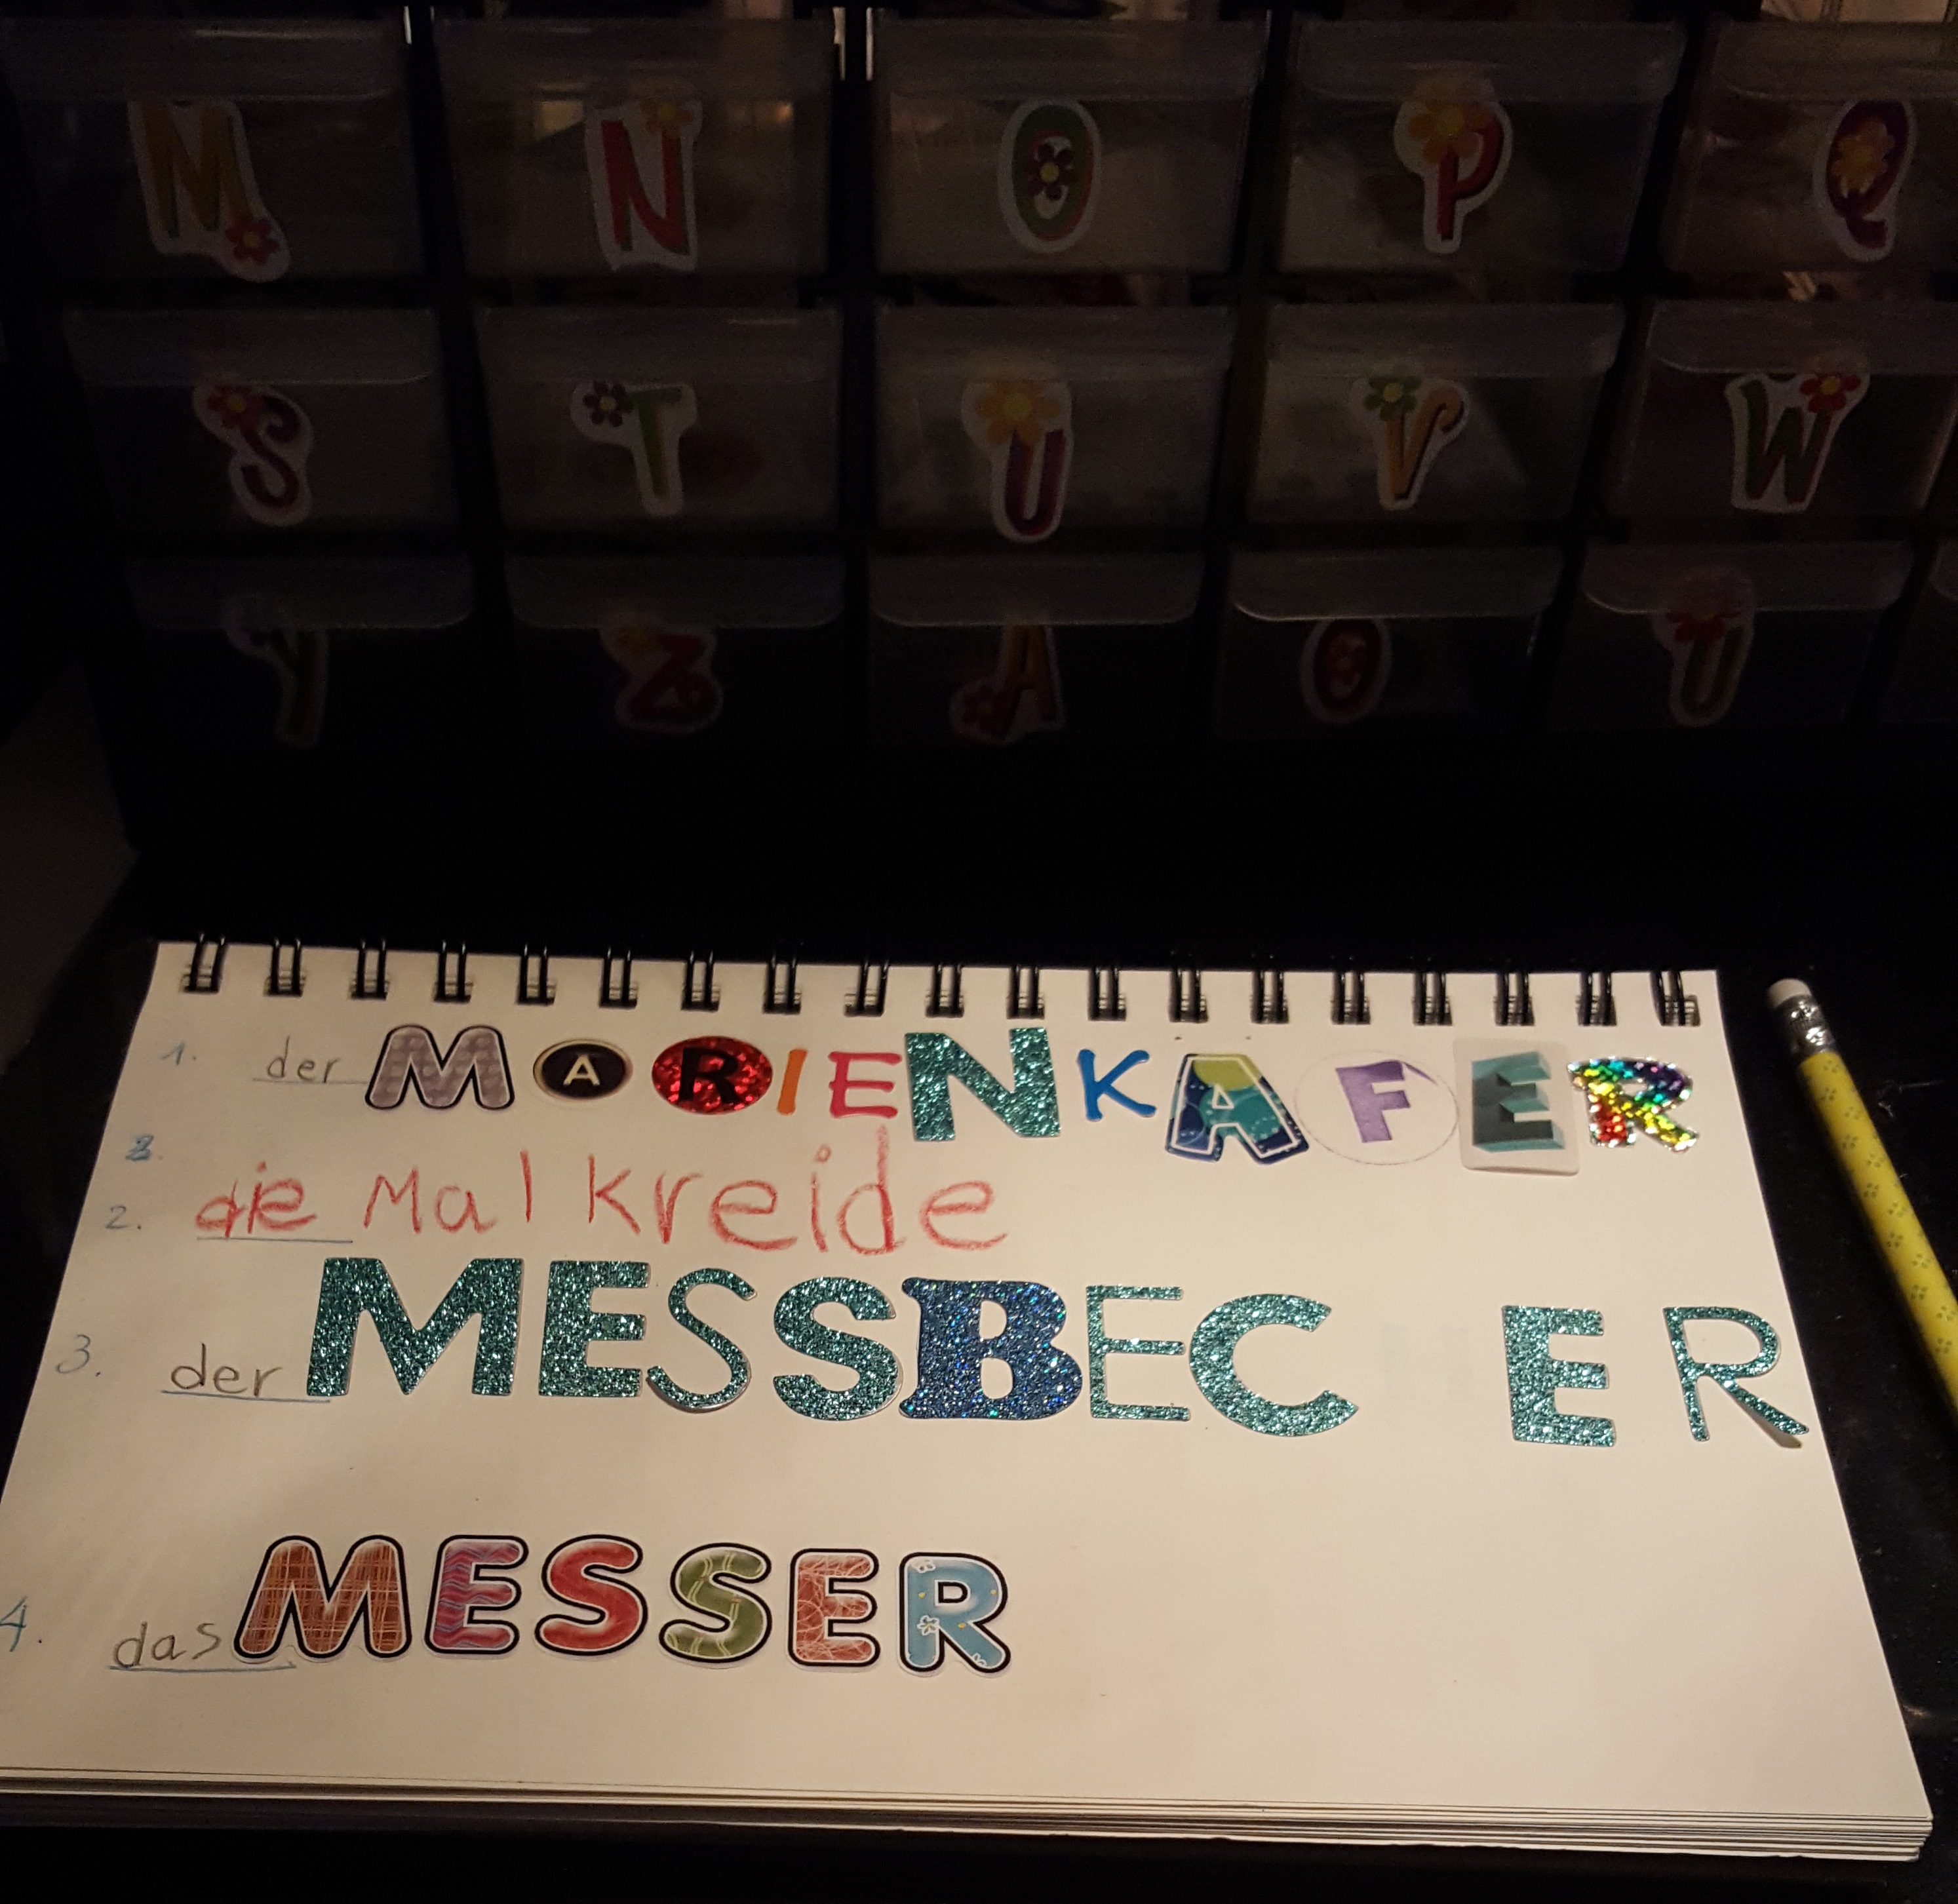 M N O P Q
S T U V W
Y Z A O U
1. der MARIENKÄFER
2. die Malkreide
3. der MESSBEC ER
4. das MESSER